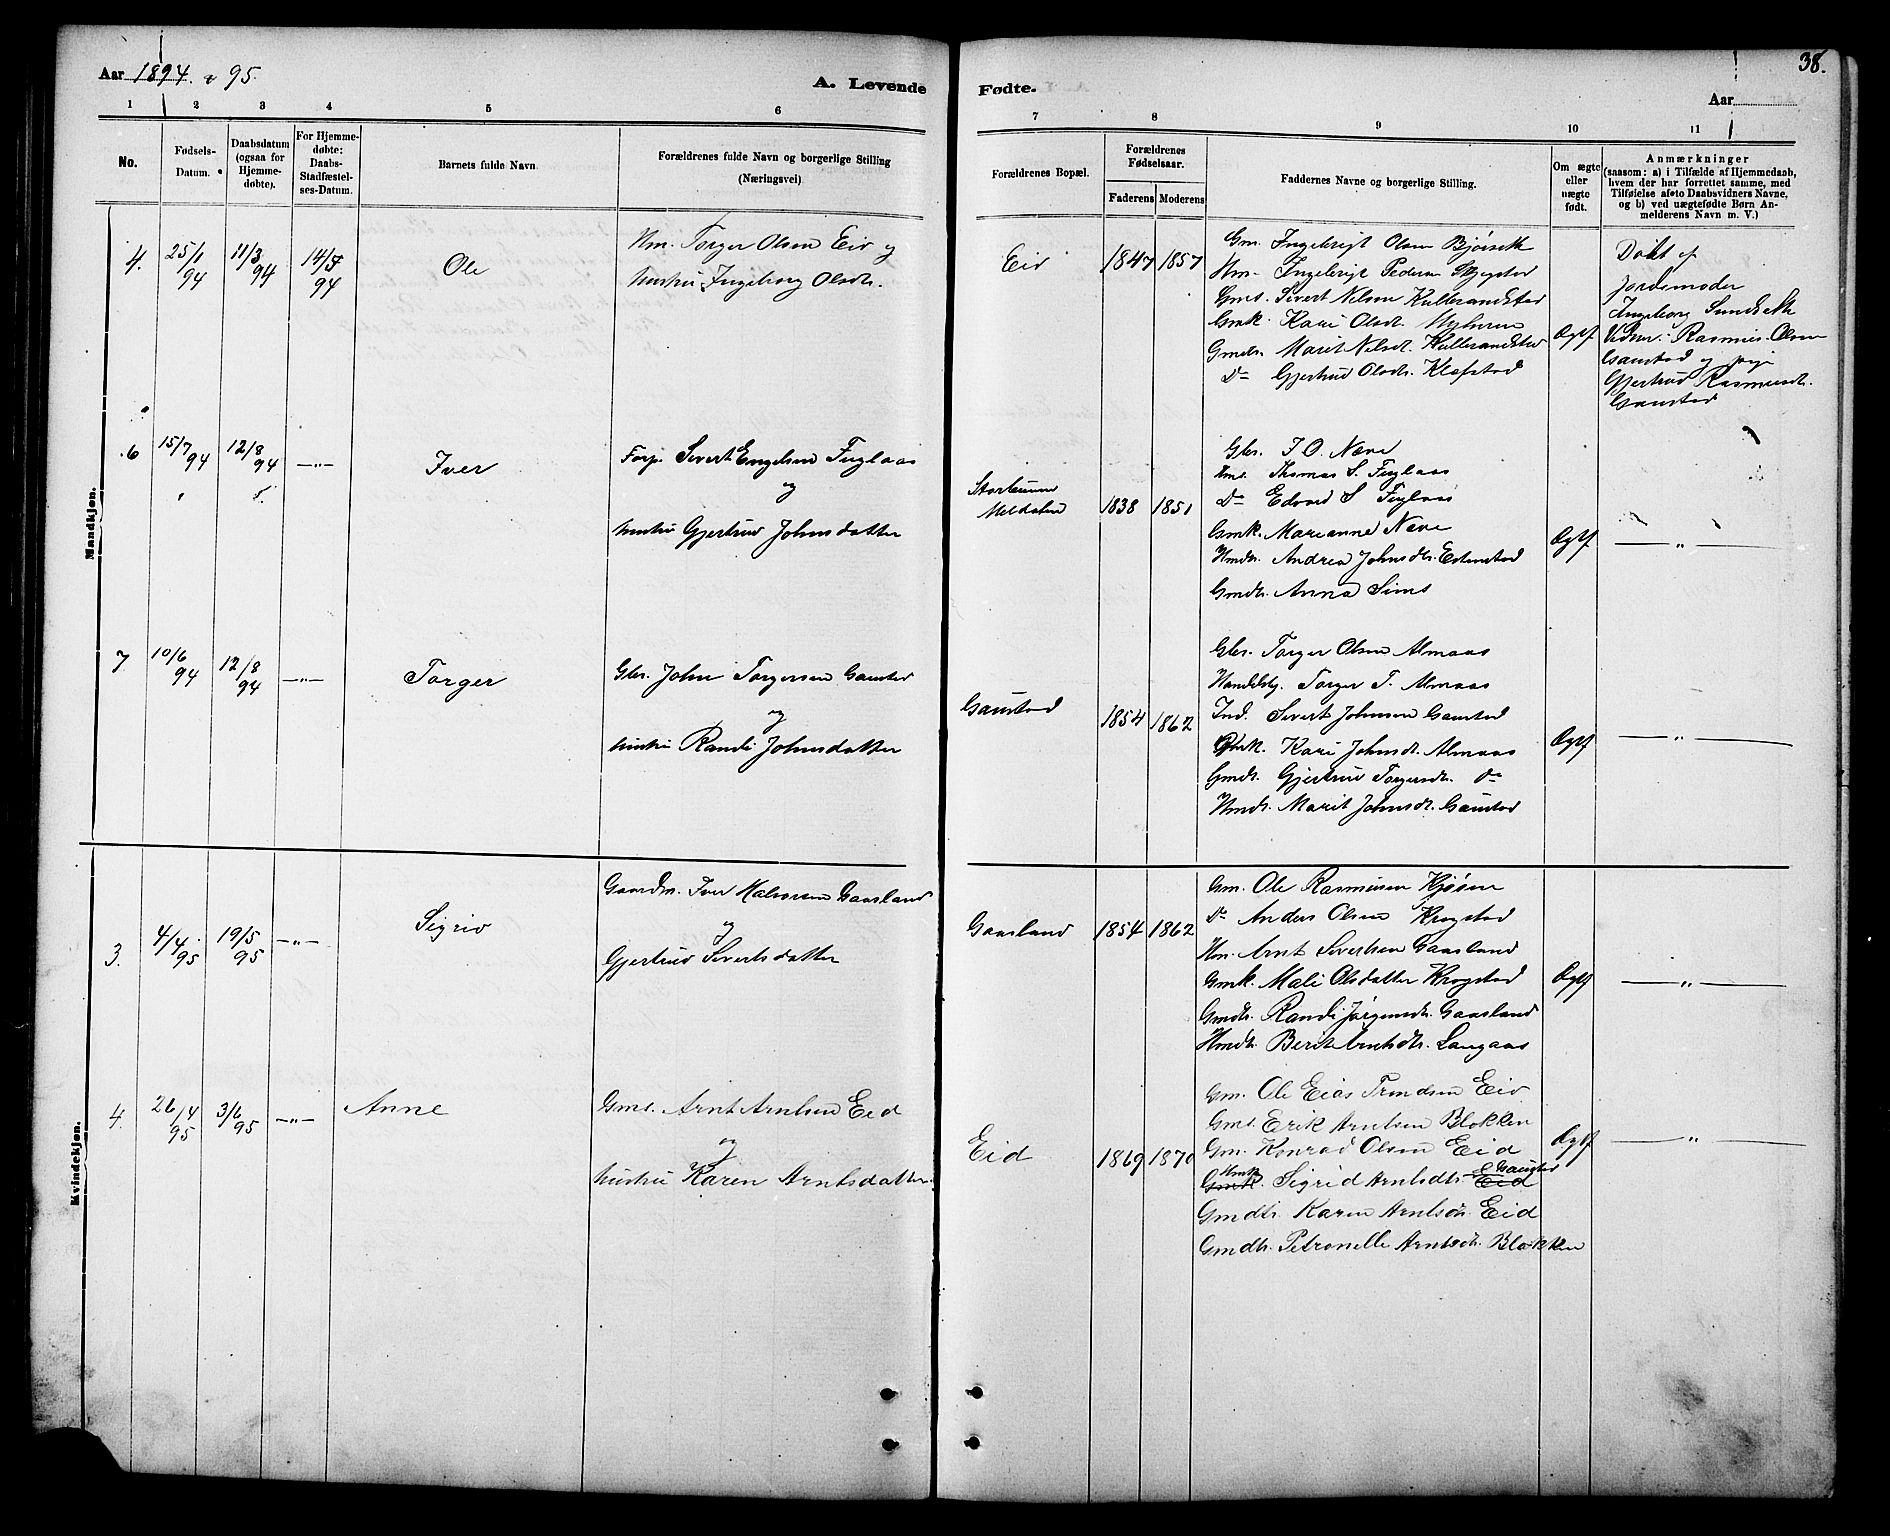 Aar 1894. & 95.
A. Levende
Fødte.
Aar
38.
1 2 3 4 5 6 7 8 9 10 11
No.
Fødsels-
Datum.
Daabsdatum
(ogsaa for
Hjemme-
døbte).
For Hjemme-
døbte:
Daabs-
Stadfæstel-
ses-Datum.
Barnets fulde Navn.
Forældrenes fulde Navn og borgerlige Stilling
(Næringsvei)
Forældrenes Bopæl.
Forældrenes
Fødselsaar.
Faderens Moderens
Faddernes Navne og borgerlige Stilling.
Om ægte
eller
uægte
født.
Anmærkninger
(saasom: a) i Tilfælde af Hjemmedaab,
hvem der har forrettet samme, med
Tilføielse af to Daabsvidners Navne,
og b) ved uægtefødte Børn An-
melderens Navn m. V.)
Mandkjøn.
4. 25/1 94 11/3 94 14/5 94
Ole
Hm. Torger Olsen Eid og
hustru Ingeborg Olsdt.
Eid
1847 1857
Gm. Ingebrigt Olsen Bjørseth
Hm. Ingebrigt Pedersen
Gms. Sivert Nilsen Kullerandstad
Gmk. Kari Olsdt.
Gmdtr. Marit Nilsdt. Kullerandstad
Do Gjertrud Olsdt. Klefstad
Ægtf
Døbt af
Jordemoder
Ingeborg Sundseth
Vidner: Rasmus Olsen
Gaustad og pige
Gjertrud Rasmusdt.
Gaustad
6 15/7 94 12/8 94 —„—
Iver
Forp. Sivert Engelsen Fuglaas
og
hustru Gjertrud Johnsdatter
Meldalen
1838 1851
Gbr. I. O. Næve
Hms. Thomas S. Fuglaas
Do Edvard S. Fuglaas
Gmk. Marianne Næve
Hmdt. Andrea Johnsdt. Estenstad
Gmdtr. Anna Sims
Ægtf
—„—
7 10/6 94 12/8 94 —„—
Torger
Gbr. John Torgersen Gaustad
og
hustru Randi Johnsdatter
Gaustad
1854 1862
Gbr. Torger Olsen Almaas
Handelsbj. Torger T. Almaas
Ind. Sivert Johnsen Gaustad
Gmk. Kari Johnsdt. Almaas
Gmdt. Gjertrud Torgersdt. Do
Hmdt. Marit Johnsdt. Gaustad
Ægtf
—„—
Kvindekjøn.
3. 4/4 95 19/5 95 —„—
Sigrid
Gaardm. Iver Halvorsen Gaasland
og
Gjertrud Sivertsdatter
Gaasland
1854 1862
Gm. Ole Rasmussen Kjøsen
Do Anders Olsen Krogstad
Hm. Arnt Sivertsen Gaasland
Gmk. Mali Olsdatter Krogstad
Gmdtr. Randi Jørgensdt. Gaasland
Hmdt. Berit Arntsdt. Langaas
Ægtf
—„—
4. 26/4 95 3/6 95 —„—
Anne
Gms. Arnt Arntsen Eid
og
hustru Karen Arntsdatter
Eid
1869 1870
Gm. Ole Elias Trondsen Eid
Gms. Erik Arntsen Blokken
Gm. Konrad Olsen Eid
Hmk. Gaustad
Gmk. Sigrid Arntsdtr. Eid
Gmdtr. Karen Arntsdt. Eid
Gmdtr. Petronelle Arntsdt. Blokken
Ægtf
—„—